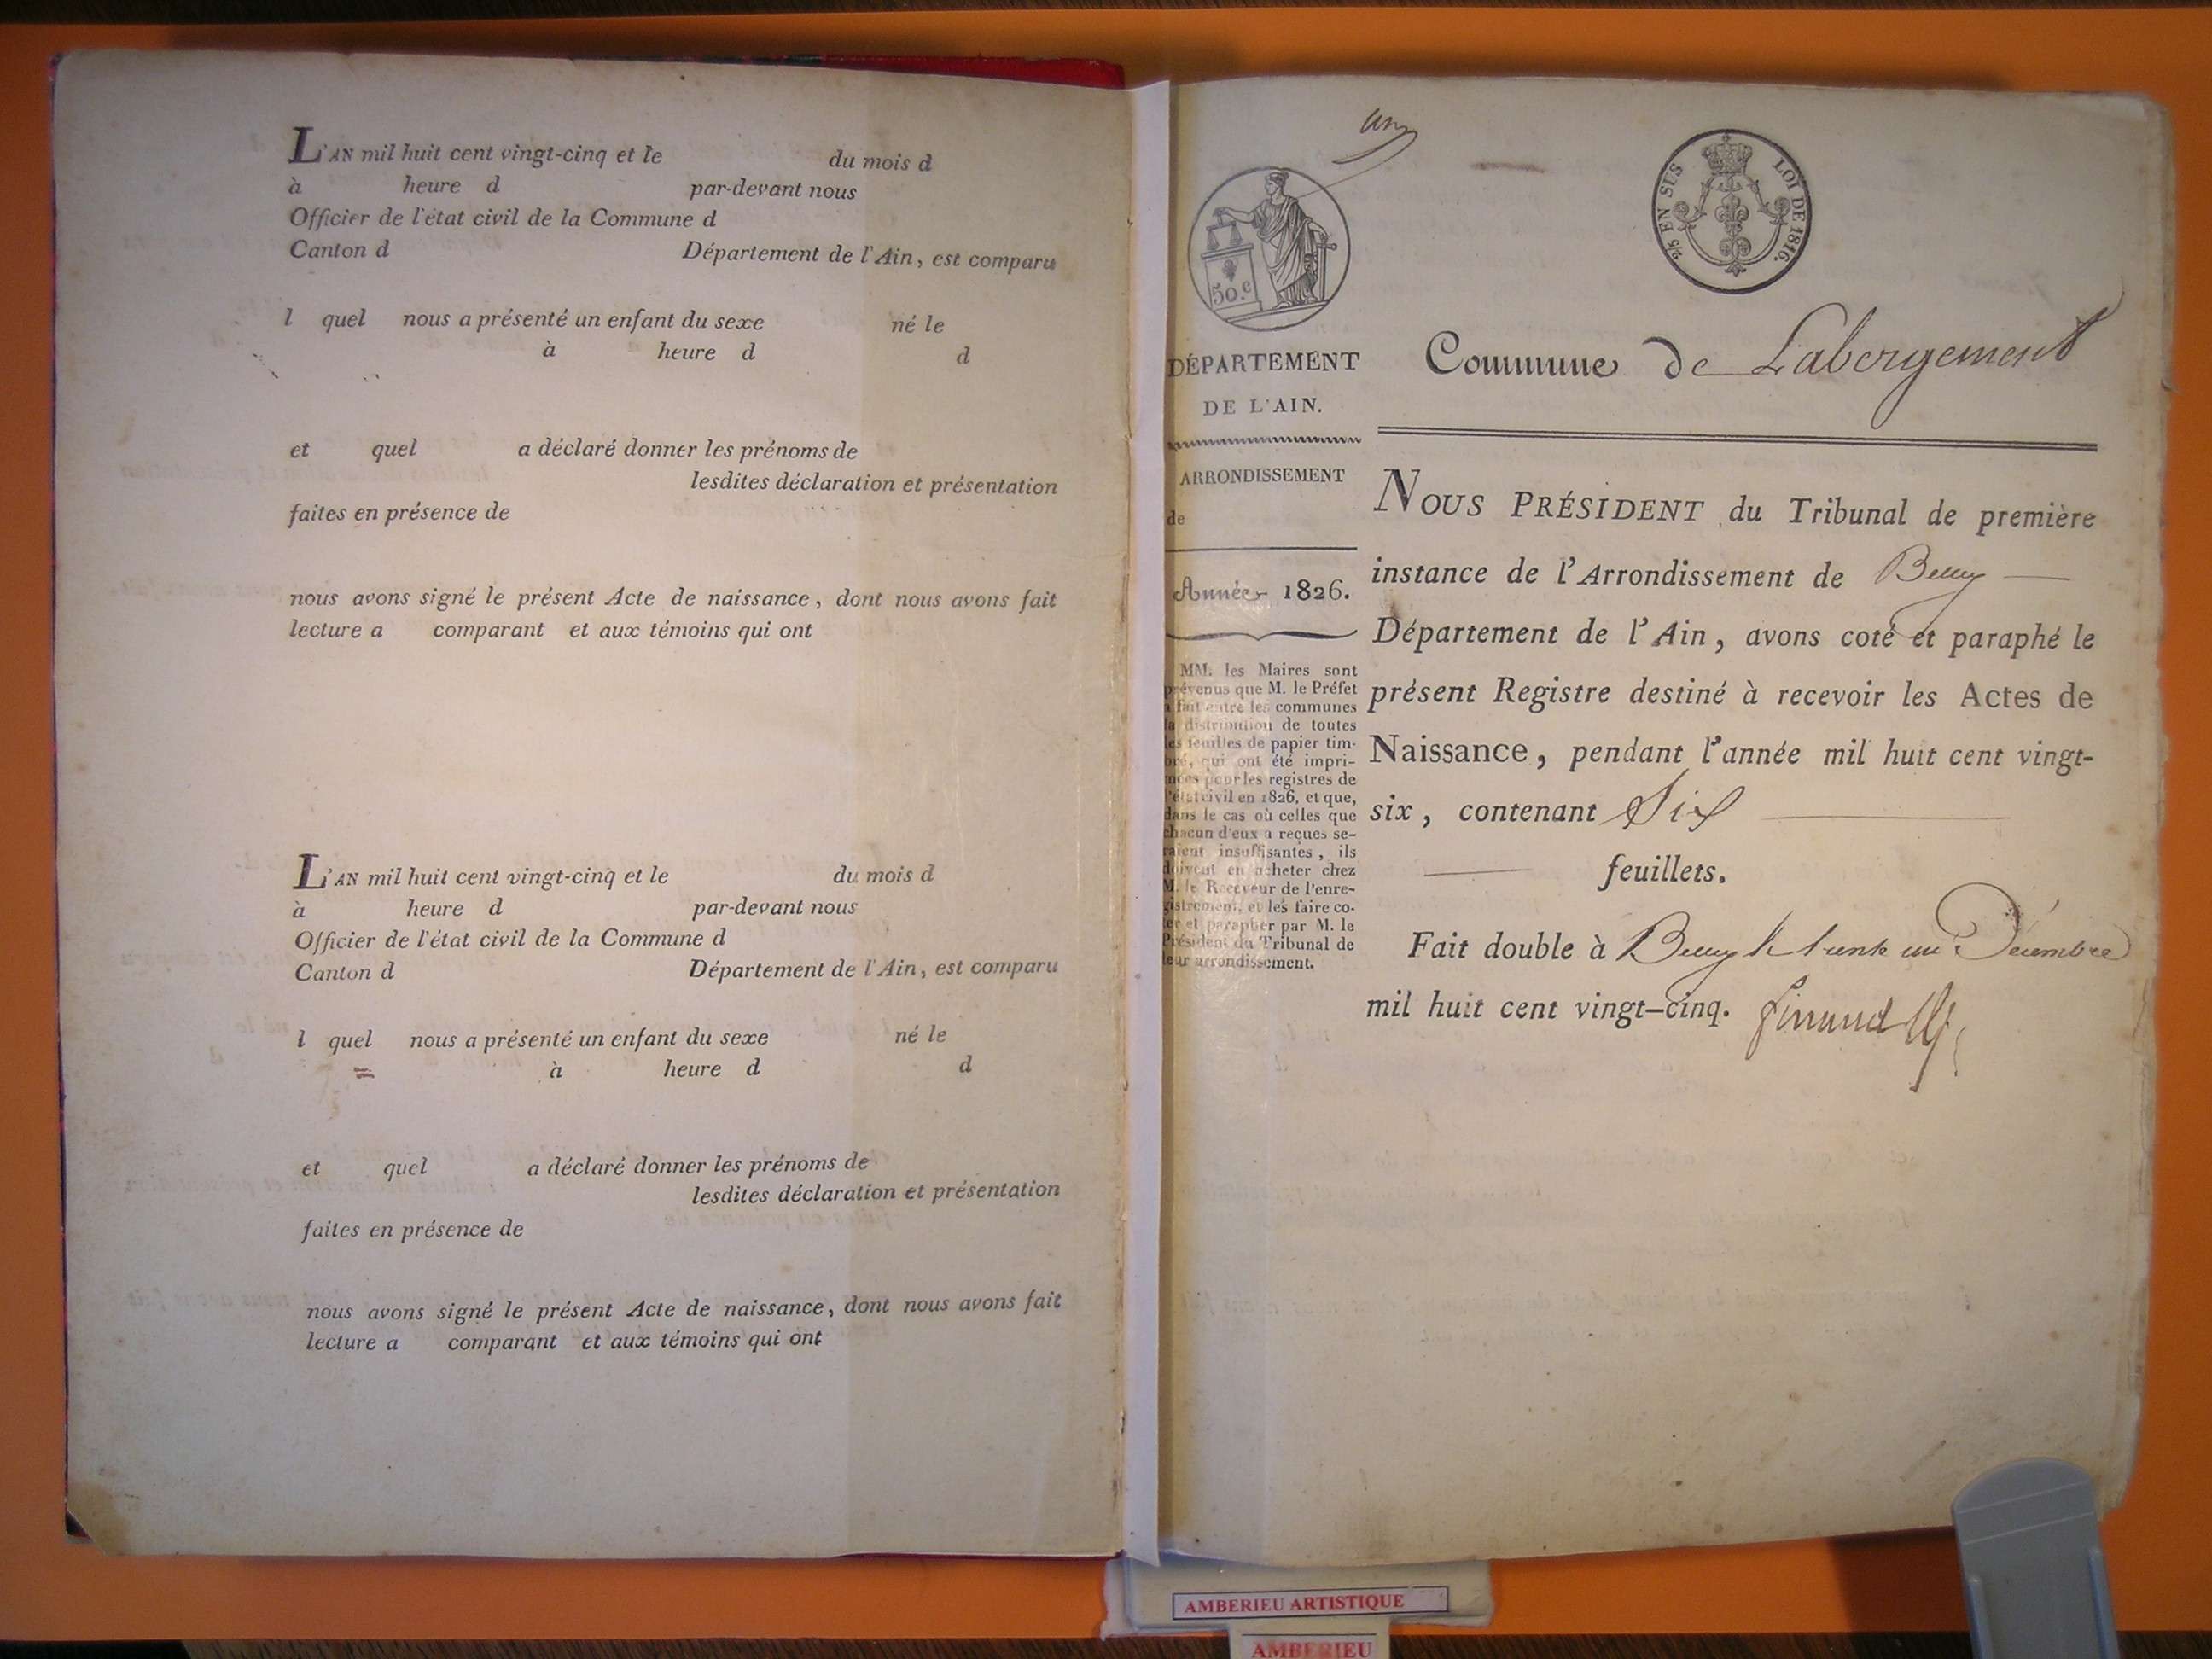 L'AN mil huit cent vingt-cinq et le du mois d
à heure d par-devant nous
Officier de l'état civil de la Commune d
Canton d Département de l'Ain, est comparu
l quel nous a présenté un enfant du sexe né le
à heure d d
et quel a déclaré donner les prénoms de
lesdites déclaration et présentation
faites en présence de
nous avons signé le présent Acte de naissance, dont nous avons fait
lecture a comparant et aux témoins qui ont
L'AN mil huit cent vingt-cinq et le du mois d
à heure d par-devant nous
Officier de l'état civil de la Commune d
Canton d Département de l'Ain, est comparu
l quel nous a présenté un enfant du sexe né le
à heure d d
et quel a déclaré donner les prénoms de
lesdites déclaration et présentation
faites en présence de
nous avons signé le présent Acte de naissance, dont nous avons fait
lecture a comparant et aux témoins qui ont
un
50.c
2/5 EN SUS LOI DE 1816.
DÉPARTEMENT
DE L'AIN.
ARRONDISSEMENT
de
Année 1826.
MM. les Maires sont
prévenus que M. le Préfet
a fait entre les communes
la distribution de toutes
les feuilles de papier tim-
bré, qui ont été impri-
mées pour les registres de
l'état civil en 1826, et que,
dans le cas où celles que
chacun d'eux a reçues se-
raient insuffisantes, ils
doivent en acheter chez
M. le Receveur de l'enre-
gistrement, et les faire co-
ter et parapher par M. le
Président du Tribunal de
leur arrondissement.
Commune de Labergement
NOUS PRÉSIDENT du Tribunal de première
instance de l'Arrondissement de Belley
Département de l'Ain, avons coté et paraphé le
présent Registre destiné à recevoir les Actes de
Naissance, pendant l'année mil huit cent vingt-
six, contenant Six
feuillets.
Fait double à Belley le trente un Décembre
mil huit cent vingt-cinq.
AMBERIEU ARTISTIQUE
AMBERIEU